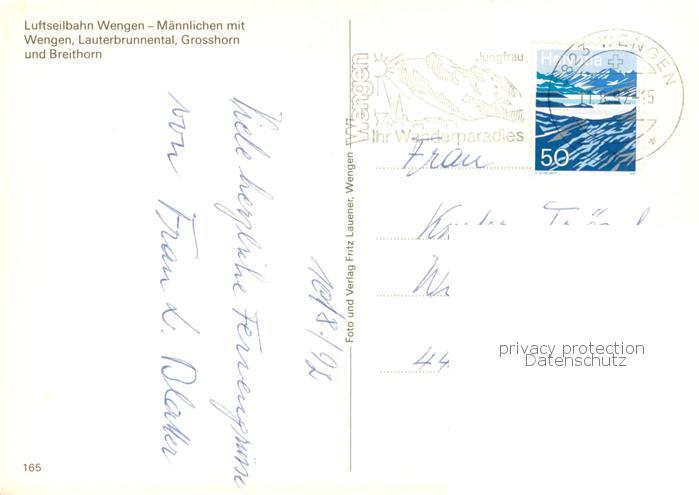 Luftseilbahn Wengen – Männlichen mit
Wengen, Lauterbrunnental, Grosshorn
und Breithorn
10/8./92
Viele herzliche Feriengrüsse
von Frau L. Blatter
165
Foto und Verlag Fritz Lauener, Wengen
Wengen
Jungfrau
Ihr Wanderparadies
Helvetia
50
3823 WENGEN
Frau
44
privacy protection
Datenschutz